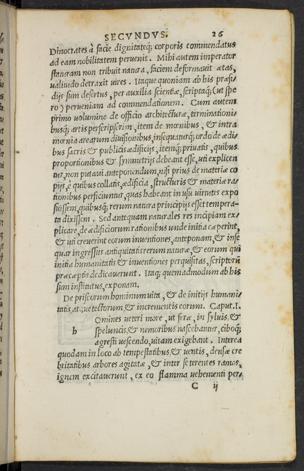 SECVNDVS. 26
Dinocrates à facie dignitateq; corporis commendatus
ad eam nobilitatem peruenit. Mihi autem imperator
staturam non tribuit natura, faciem deformauit ætas,
ualitudo detraxit uires. Itaque quoniam ab his præsi
dijs sum desertus, per auxilia scientiæ, scriptaq; (ut spe
ro) perueniam ad commendationem. Cum autem
primo uolumine de officio architecturæ, terminationis
busq; artis perscripserim, item de mœnibus, & intra
mœnia arearum diuisionibus, insequaturq; ordo de ædi
bus sacris & publicis ædificijs, itemq; priuatis, quibus
proportionibus & symmetrijs debeant esse, uti explicen
tur, non putaui anteponendum, nisi prius de materiæ co
pijs, è quibus collatis, ædificia, structuris & materiæ ra
tionibus perficiuntur, quas habeant in usu uirtutes expo
suissem, quibusq; rerum naturæ principijs esset tempera
ta dixissem. Sed antequam naturales res incipiam ex
plicare, de ædificiorum rationibus unde initia ceperint,
& uti creuerint eorum inuentiones, anteponam, & inse
quar ingressus antiquitatis rerum naturæ, & eorum qui
initia humanitatis & inuentiones perquisitas, scriptorũ
præceptis dedicauerunt. Itaq; quemadmodum ab his
sum institutus, exponam.
De priscorum hominum uita, & de initijs humani
tatis, atq; tectorum & incrementis eorum. Caput. I.
h Omines ueteri more, ut feræ, in syluis &
speluncis & nemoribus nascebantur, ciboq;
agresti uescendo, uitam exigebant. Interea
quodam in loco ab tempestatibus & uentis, densæ cre
britatibus arbores agitatæ, & inter se terentes ramos,
ignem excitauerunt, ex eo flamma uehementi per=
C ij